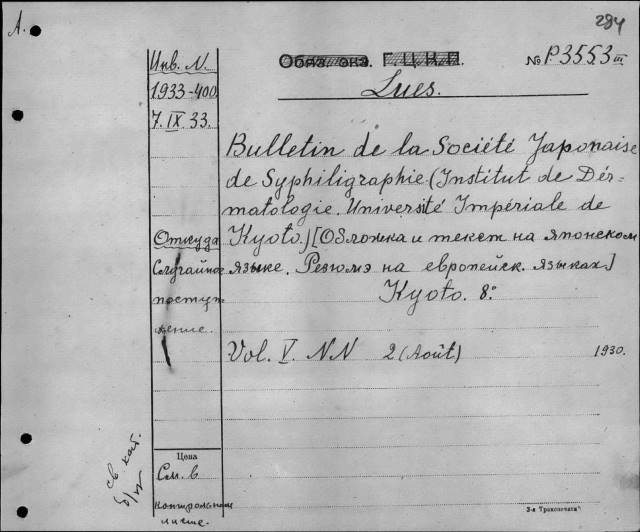 A.
284
Инв. N.
1933-400
7.IX.33.
Обяз. экз. Г.Ц.К.П.
№ P.3553 III
Lues.
Bulletin de la Société Japonaise
de Syphiligraphie (Institut de Dér-
matologie. Université Impériale de
Kyoto.) [Обложка и текст на японском
языке. Резюмэ на европейск. языках.]
Kyoto. 8º
Откуда
Случайное
поступ-
ление.
Vol. V. NN 2 (Août) 1930.
Цена
См. в
контрольном
листе.
св. кат.
3-я Транспечати